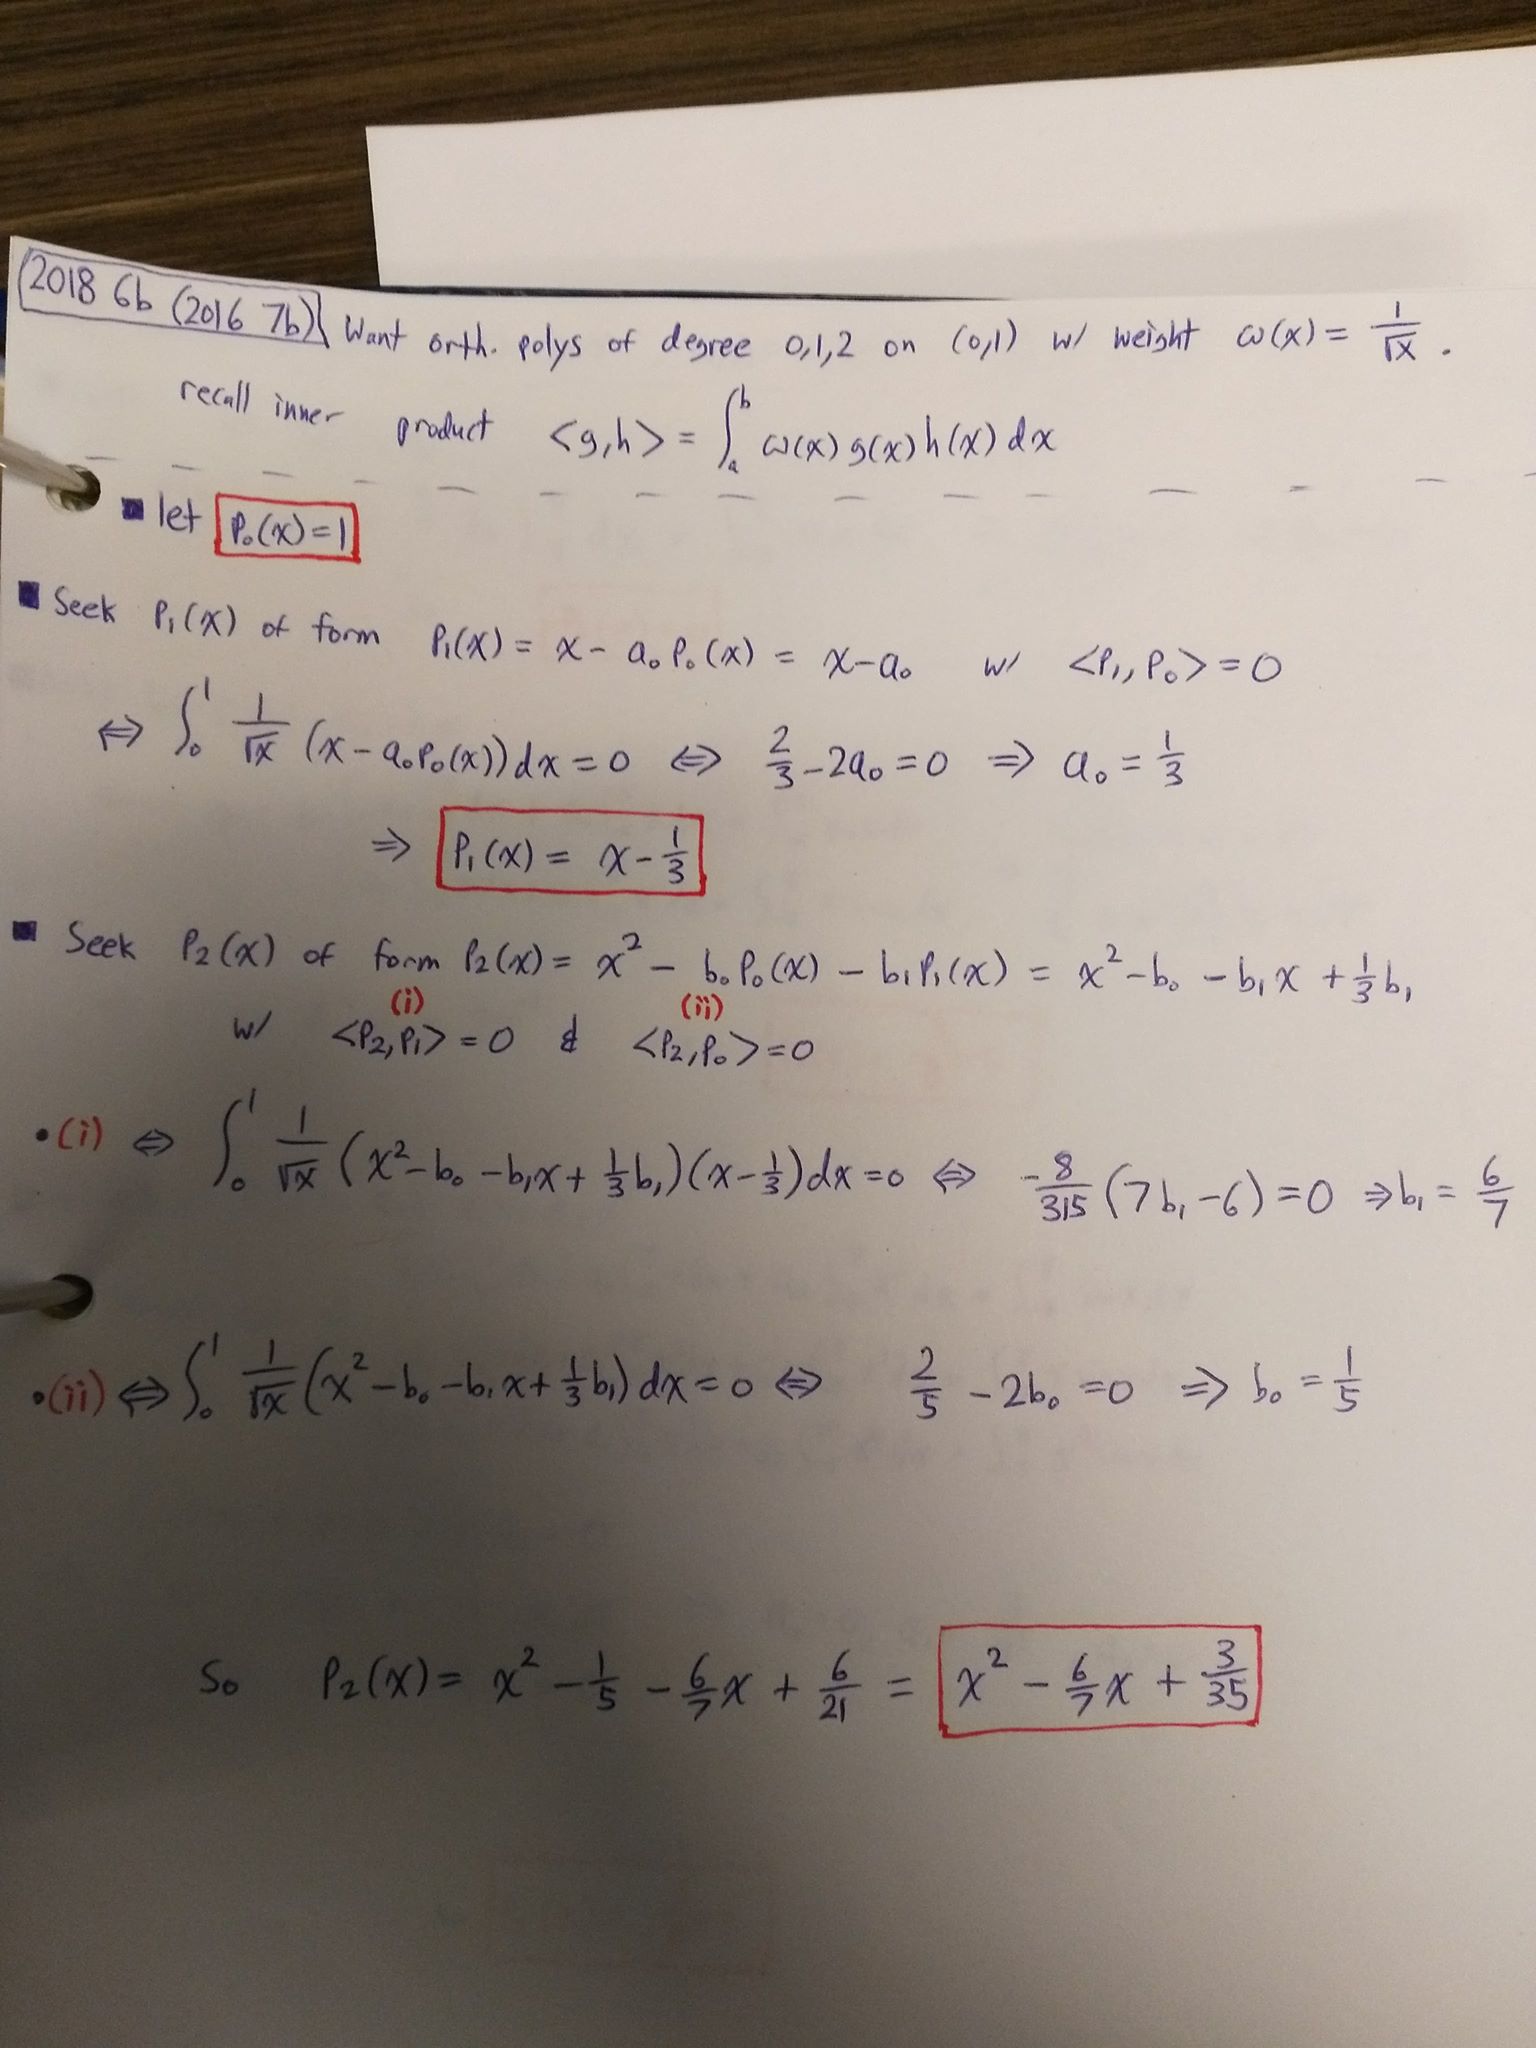 2018 6b (2016 7b) Want orth. polys of degree 0,1,2 on (0,1) w/ weight ω(x) = 1/√x .
recall inner product <g,h> = ∫_a^b ω(x) g(x) h(x) dx
▪ let P₀(x)=1
▪ Seek P₁(x) of form P₁(x) = x - a₀P₀(x) = x-a₀ w/ <P₁,P₀> = 0
⇔ ∫_0^1 1/√x (x - a₀P₀(x)) dx = 0 ⇔ 2/3 - 2a₀ = 0 ⇒ a₀ = 1/3
⇒ P₁(x) = x - 1/3
▪ Seek P₂(x) of form P₂(x) = x² - b₀P₀(x) - b₁P₁(x) = x² - b₀ - b₁x + 1/3 b₁
(i) (ii)
w/ <P₂,P₁> = 0 & <P₂,P₀> = 0
• (i) ⇔ ∫_0^1 1/√x (x² - b₀ - b₁x + 1/3 b₁)(x - 1/3) dx = 0 ⇔ -8/315 (7b₁ - 6) = 0 ⇒ b₁ = 6/7
• (ii) ⇔ ∫_0^1 1/√x (x² - b₀ - b₁x + 1/3 b₁) dx = 0 ⇔ 2/5 - 2b₀ = 0 ⇒ b₀ = 1/5
So P₂(x) = x² - 1/5 - 6/7 x + 6/21 = x² - 6/7 x + 3/35